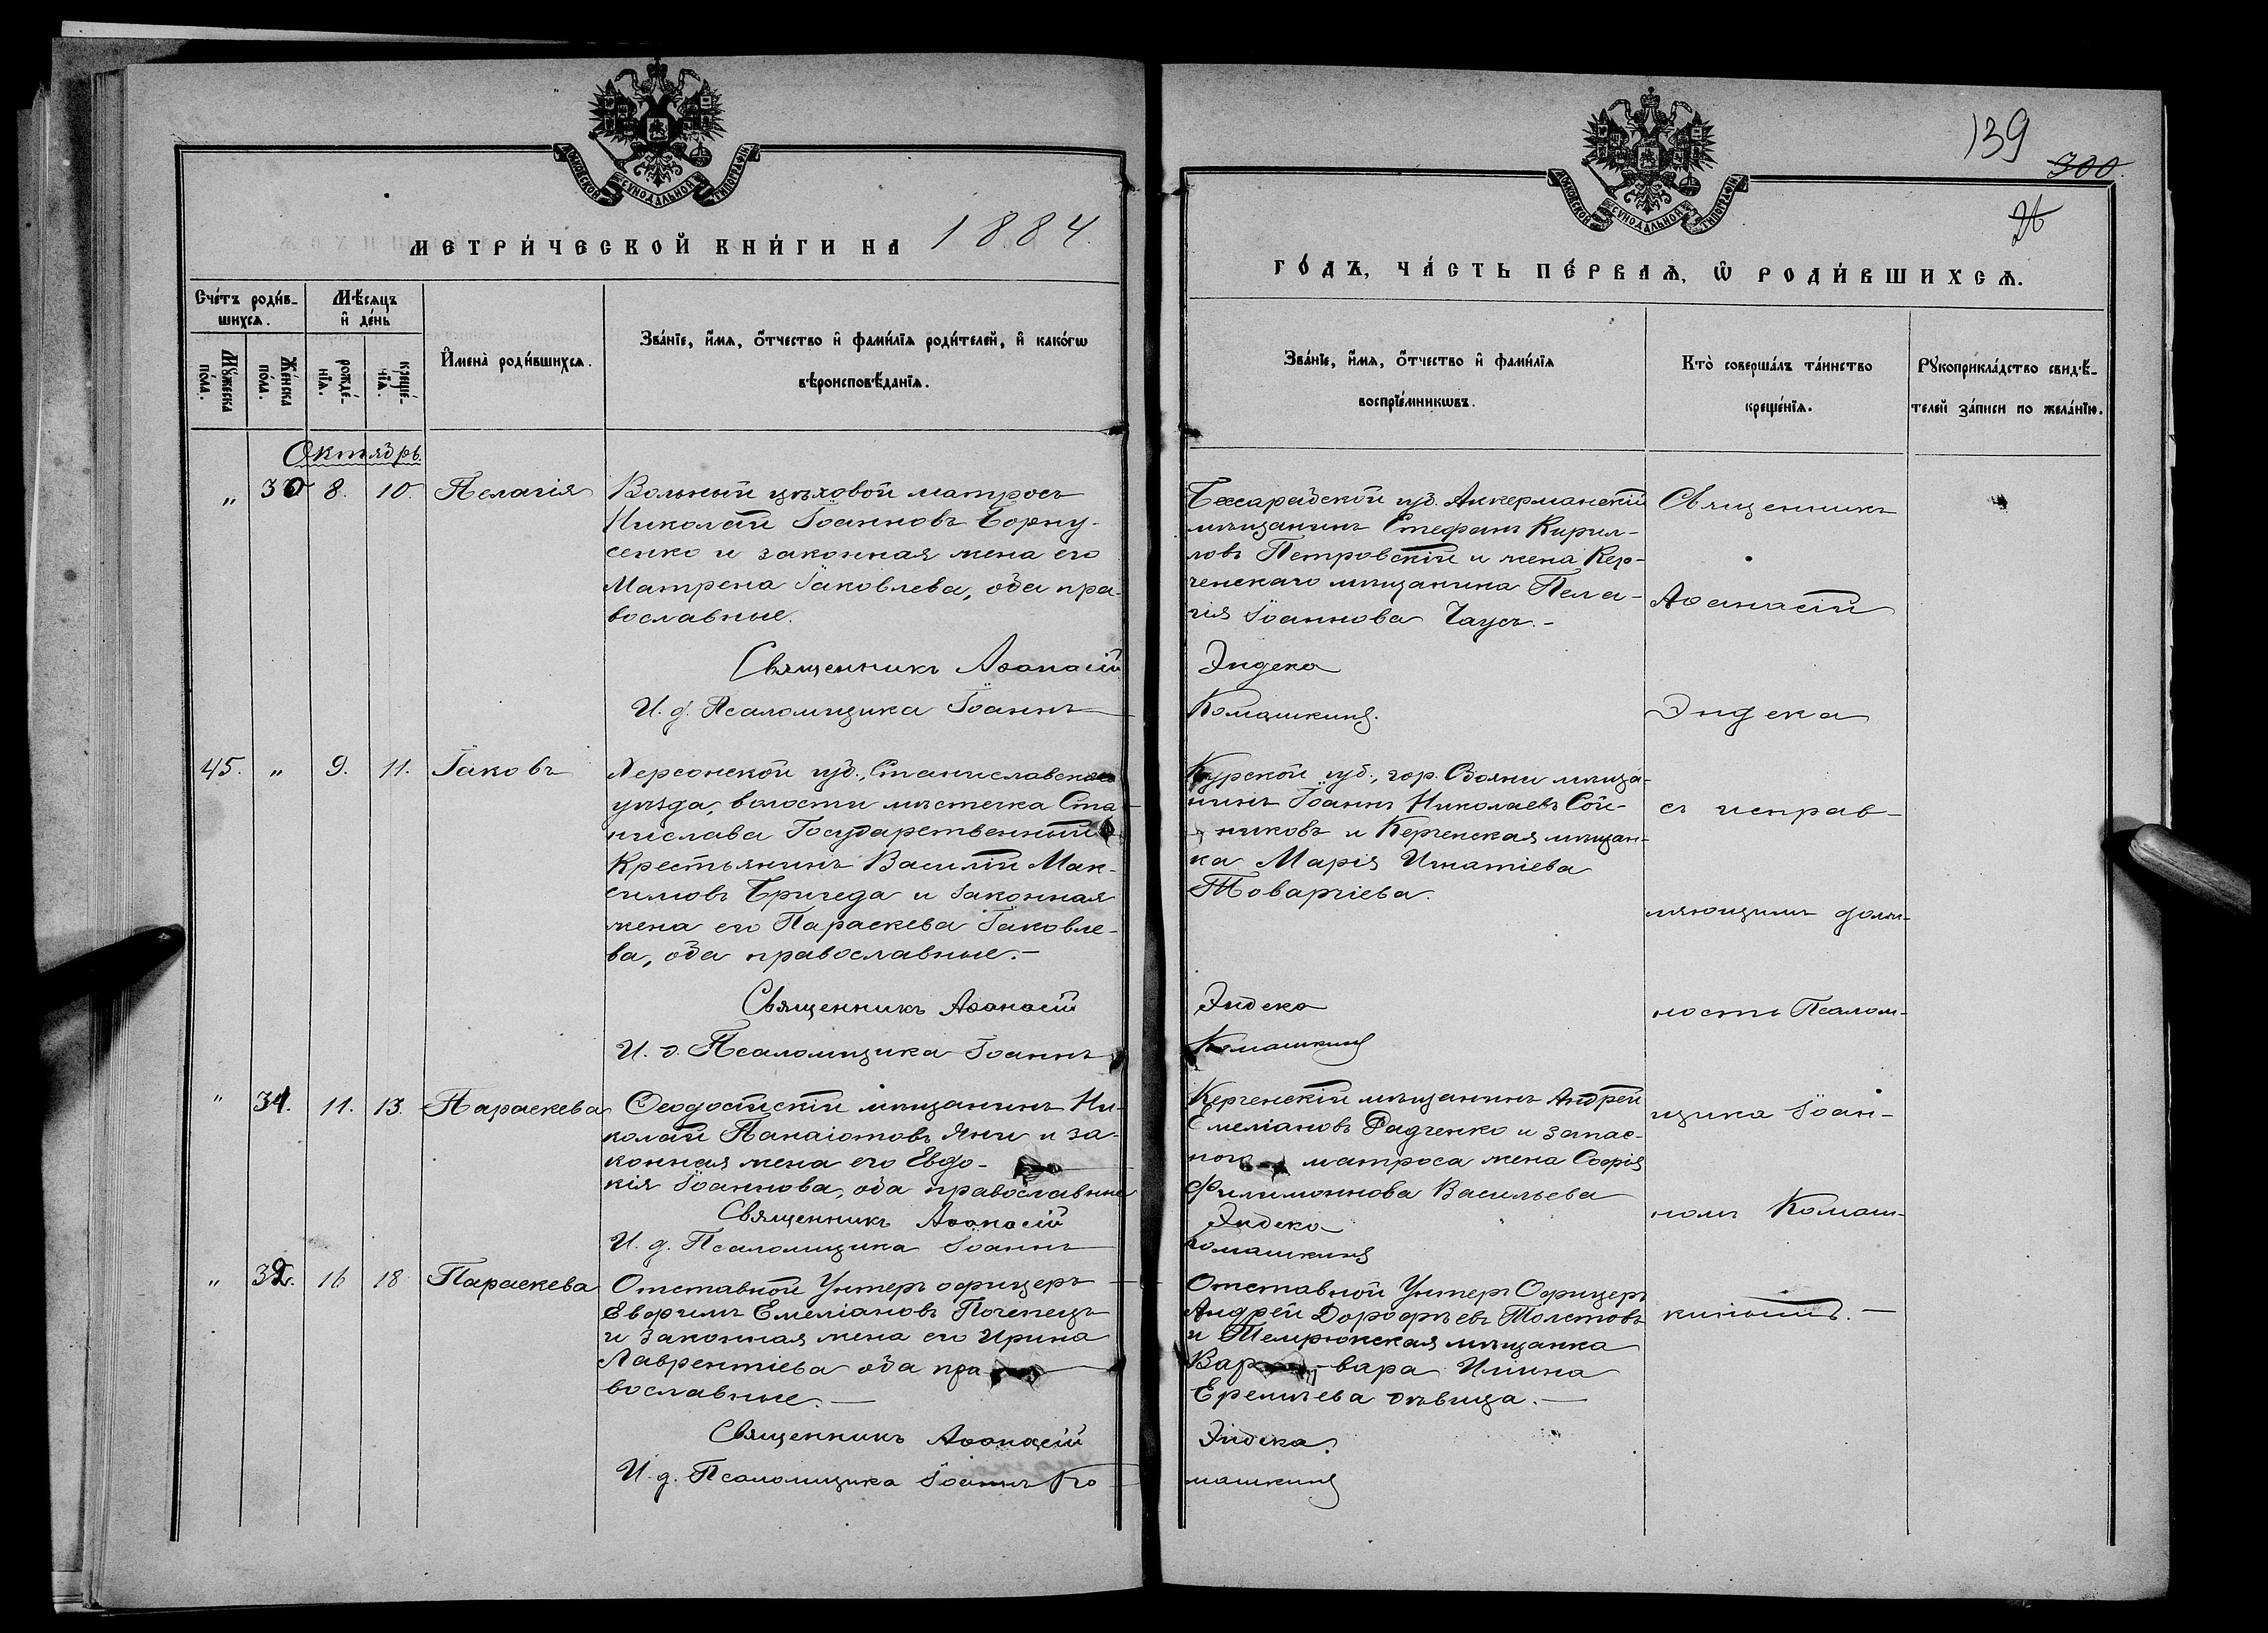 МОСКОВСКОЙ СѴНОДАЛЬНОЙ ТИПОГРАФІИ
МЕТРИ́ЧЕСКОЙ КНИ́ГИ НА 1884.
Сче́тъ роди́в-
шихсѧ.
Мѣ́сяцъ
и҆ де́нь
Мꙋ́жеска
по́ла.
Же́нска
по́ла.
рожде́-
нїѧ.
креще́-
нїѧ.
И҆мена̀ роди́вшихсѧ.
Зва́нїе, и҆́мѧ, ѻ҆́тчество и҆ фами́лїѧ роди́телей, и҆ како́гѡ
вѣроисповѣ́данїѧ.
Октябрь.
„ 30 8. 10. Пелагія
Вольный цѣховой матросъ
Николай Іоанновъ Борну-
сенко и законная жена его
Матрена Іаковлева, оба пра-
вославные.
Священникъ Аѳанасій
И. д. Псаломщика Іоаннъ
45. „ 9. 11. Іаковъ
Херсонской губ., Станиславскаго
уѣзда, волости мѣстечка Ста-
нислава Государственный
Крестьянинъ Василій Мак-
симовъ Бричеда и законная
жена его Параскева Іаковле-
ва, оба православные.-
Священникъ Аѳанасій
И. д. Псаломщика Іоаннъ
„ 31. 11. 13. Параскева
Ѳеодосійскій мѣщанинъ Ни-
колай Панаіотовъ Яни и за-
конная жена его Евдо-
кія Іоаннова, оба православные
Священникъ Аѳанасій
И. д. Псаломщика Іоаннъ
„ 32. 16 18 Параскева
Отставной Унтеръ офицеръ
Евфимъ Емеліановъ Поченецъ
и законная жена его Ирина
Лаврентіева оба пра
вославные.-
Священникъ Аѳанасій
И. д. Псаломщика Іоаннъ Ко
139
300
26
МОСКОВСКОЙ СѴНОДАЛЬНОЙ ТИПОГРАФІИ
ГО́ДЪ, ЧА́СТЬ ПЕ́РВАѦ, Ѡ҆ РОДИ́ВШИХСѦ.
Зва́нїе, и҆́мѧ, ѻ҆́тчество и҆ фами́лїѧ
воспрїе́мникѡвъ.
Кто̀ соверша́лъ та́инство
креще́нїѧ.
Рꙋкоприкла́дство свидѣ́-
телей за́писи по жела́нїю.
Бессарабской губ. Аккерманскій
мѣщанинъ Стефанъ Кирил-
ловъ Петровскій и жена Кер-
ченскаго мѣщанина Пела-
гія Іоаннова Чаусъ.-
Эндека
Комашкинъ.
Курской губ., гор. Обояни мѣща-
нинъ Іоаннъ Николаевъ Сой-
никовъ и Керченская мѣщан-
ка Марія Игнатіева
Товарчіева.
Эндека
Комашкинъ
Керченскій мѣщанинъ Андрей
Емеліановъ Радченко и запас-
ного матроса жена Софія
Филимоннова Васильева
Эндека
Комашкинъ
Отставной Унтеръ Офицеръ
Андрей Дорофѣевъ Толстовъ
и Темрюкская мѣщанка
Вар-вара Иліина
Еремѣева дѣвица.-
Эндека.
машкинъ
Священникъ
Аѳанасій
Эндека
съ исправ-
ляющимъ долж-
ность Псалом-
щика Іоан-
номъ Комаш-
кинымъ.-